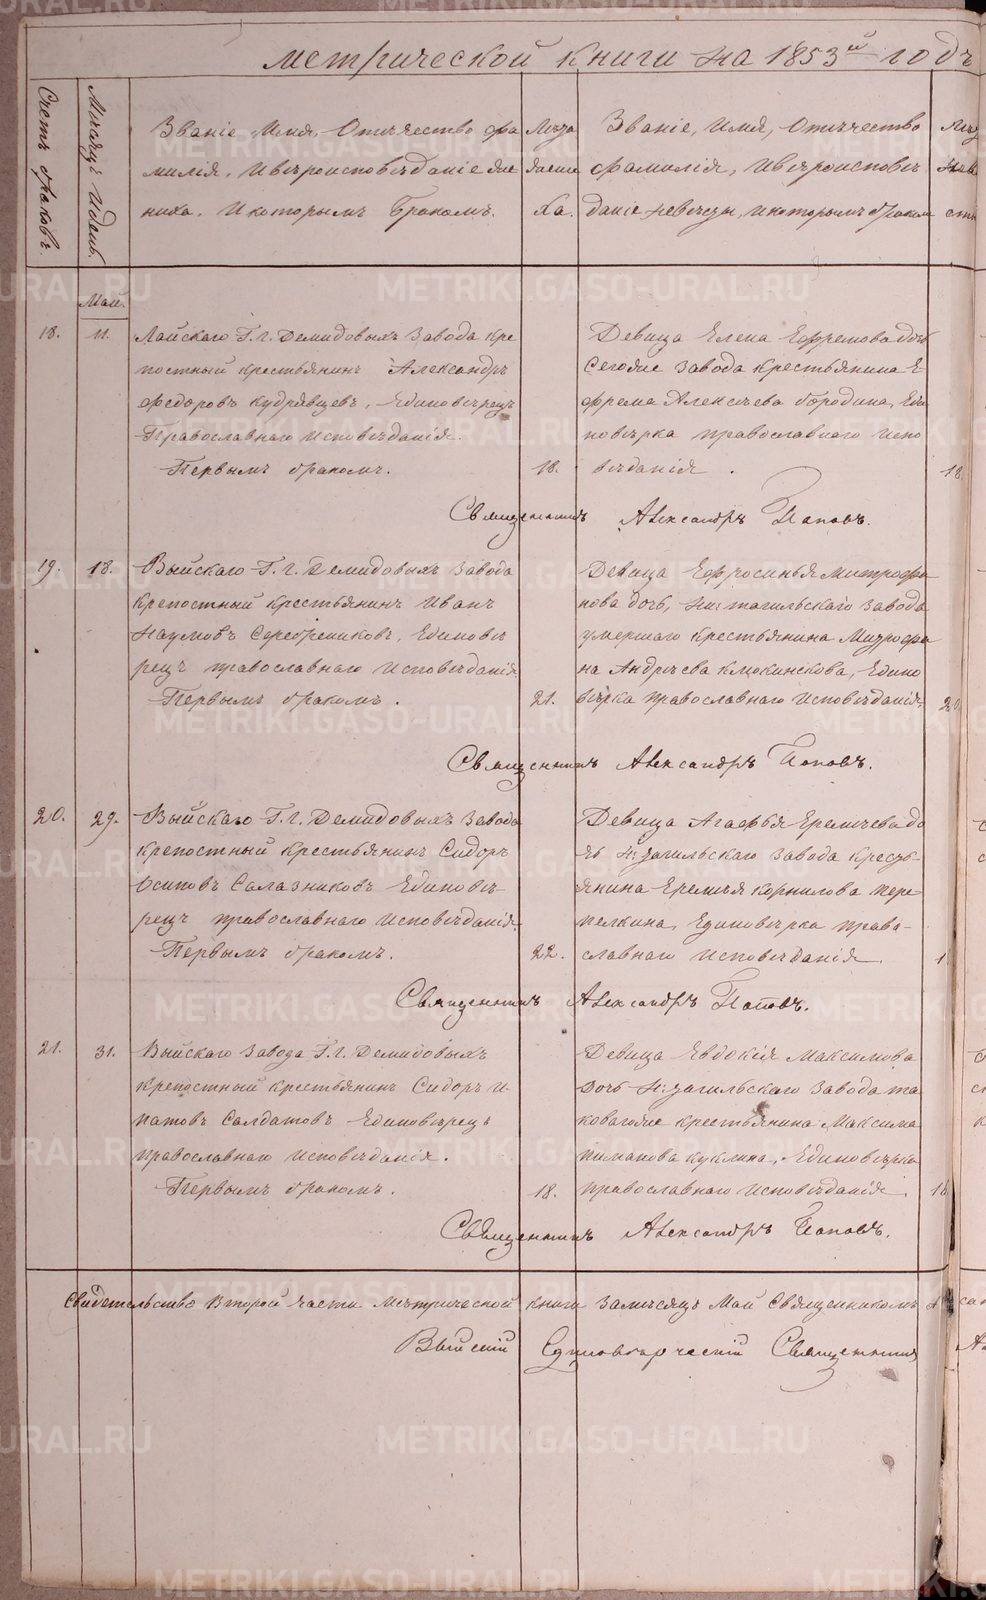 метрической книги на 1853й годъ
Счетъ браковъ.
Мѣсяцъ и день.
Званіе, Имя, Отчество, фа
милія, и вѣроисповѣданіе же
ниха, и которымъ бракомъ.
Лѣта
жени
ха.
Званіе, Имя, Отчество
фамилія, и вѣроисповѣ
даніе невѣсты, и которымъ бракомъ
Май.
18.
11.
Лайскаго Г. г. Демидовыхъ завода кре
постный крестьянинъ Александръ
Федоровъ Кудрявцевъ, Единовѣрецъ
Православнаго исповѣданія.
Первымъ бракомъ.
18.
Девица Елена Ефремова дочь
Сегоже завода крестьянина Е
фрема Алексѣева Бородина, Еди
новѣрка православнаго испо
вѣданія.
18.
Священникъ Александръ Поповъ.
19.
18.
Выйскаго Г. г. Демидовыхъ завода
крепостный крестьянинъ Иванъ
Наумовъ Серебрениковъ, Единовѣ
рецъ православнаго исповѣданія
Первымъ бракомъ.
21.
Девица Ефросинья Митрофа
нова дочь, Н: тагильскаго завода
умершаго крестьянина Митрофа
на Андрѣева Клюкинскова, Едино
вѣрка православнаго исповѣданія,
20.
Священникъ Александръ Поповъ.
20.
29.
Выйскаго Г. г. Демидовыхъ завода
крепостный крестьянинъ Сидоръ
Осиповъ Салазниковъ Единовѣ
рецъ православнаго исповѣданія,
Первымъ бракомъ.
22.
Девица Агафья Еремѣева до
чь Н: тагильскаго завода кресть
янина Еремѣя Корнилова Пере
пелкина, Единовѣрка право-
славнаго исповѣданія.
Священникъ Александръ Поповъ.
21.
31.
Выйскаго завода Г. г. Демидовыхъ
крепостный крестьянинъ Сидоръ И
патовъ Солдатовъ Единовѣрецъ
православнаго исповѣданія.
Первымъ бракомъ.
18.
Девица Евдокія Максимова
дочь Н: тагильскаго завода та
ковагоже крестьянина Максима
Пиманова Куклина, Единовѣрка
православнаго исповѣданія.
18
Священникъ Александръ Поповъ.
Свидетельство второй части метрической книги за мѣсяцъ Май Священникомъ
Выйскій Единовѣрческій Священникъ
METRIKI.GASO-URAL.RU